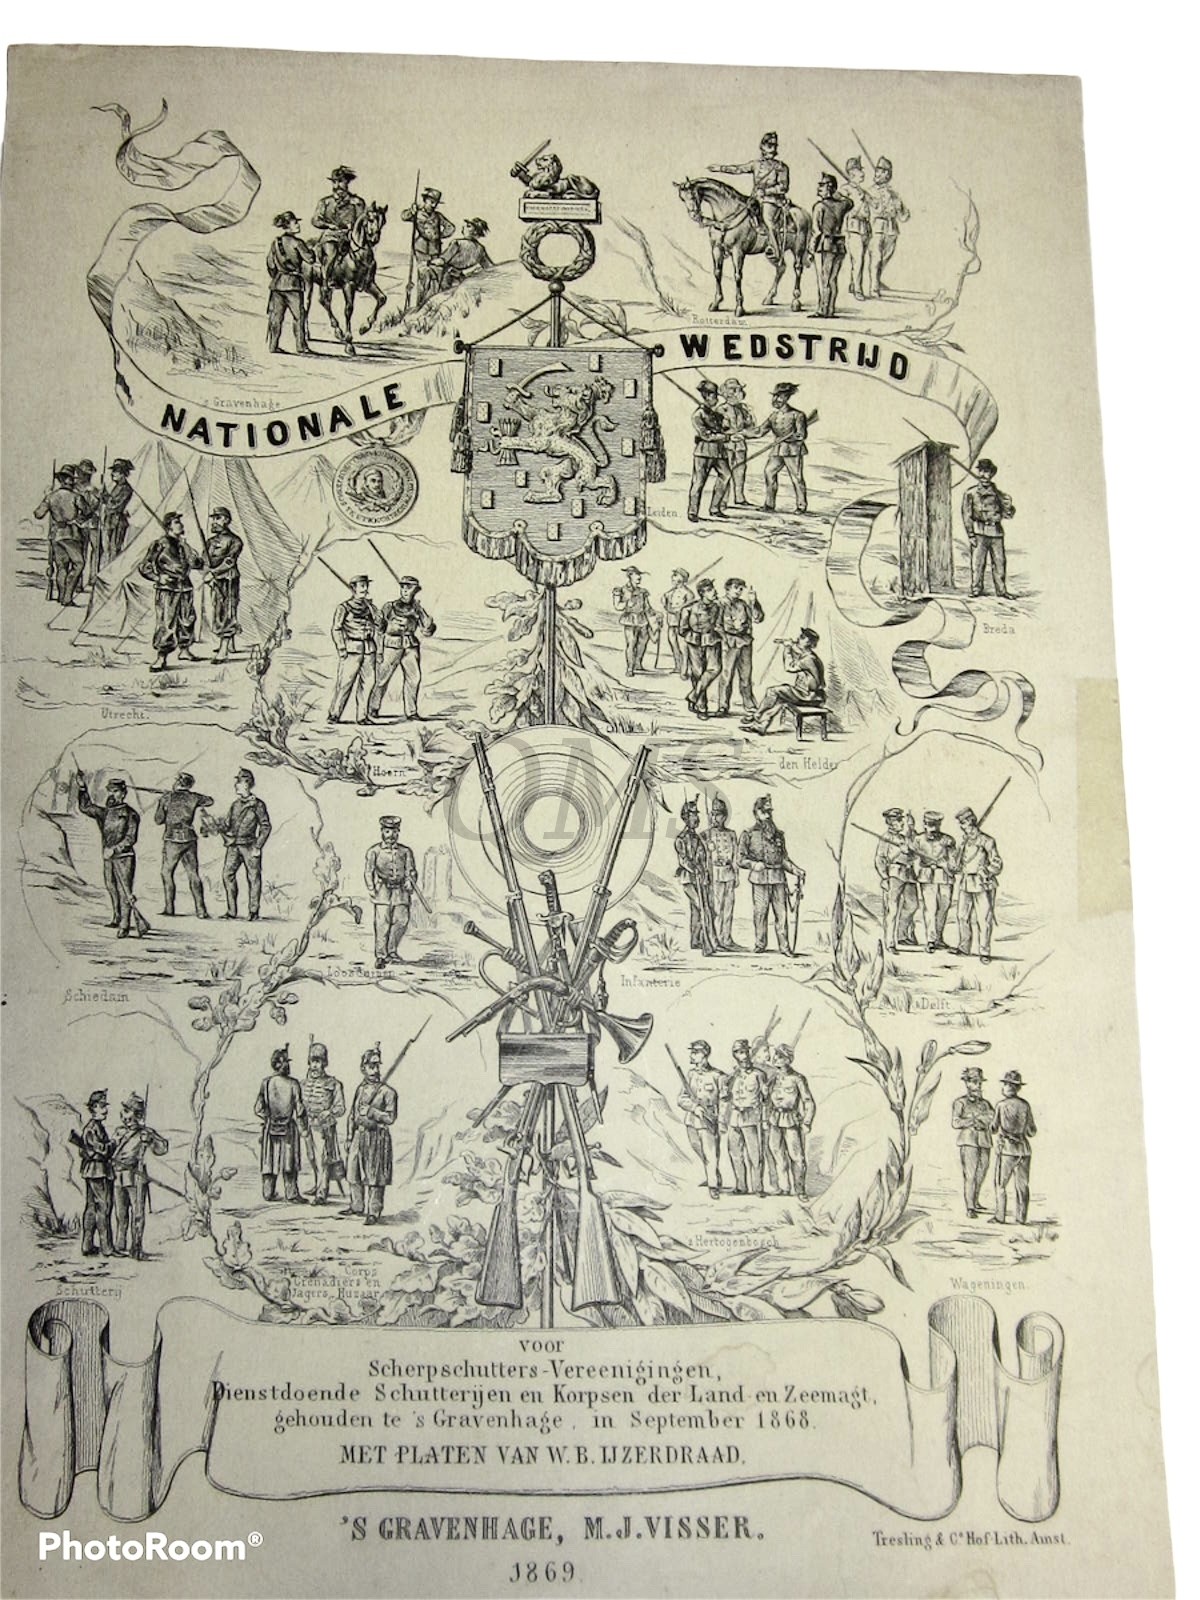 Rotterdam.
NATIONALE WEDSTRIJD
's Gravenhage
Leiden.
Breda
Utrecht.
Hoorn
den Helder
Schiedam
Loosduinen
Infanterie
Delft
's Hertogenbosch
Schutterij
Corps
Grenadiers en
Jagers, Husaar
Wageningen.
OMS
voor
Scherpschutters-Vereenigingen,
Dienstdoende Schutterijen en Korpsen der Land- en Zeemagt,
gehouden te 's Gravenhage, in September 1868.
MET PLATEN VAN W. B. IJZERDRAAD.
'S GRAVENHAGE, M. J. VISSER.
Tresling & Cº Hof-Lith. Amst.
1869.
PhotoRoom®